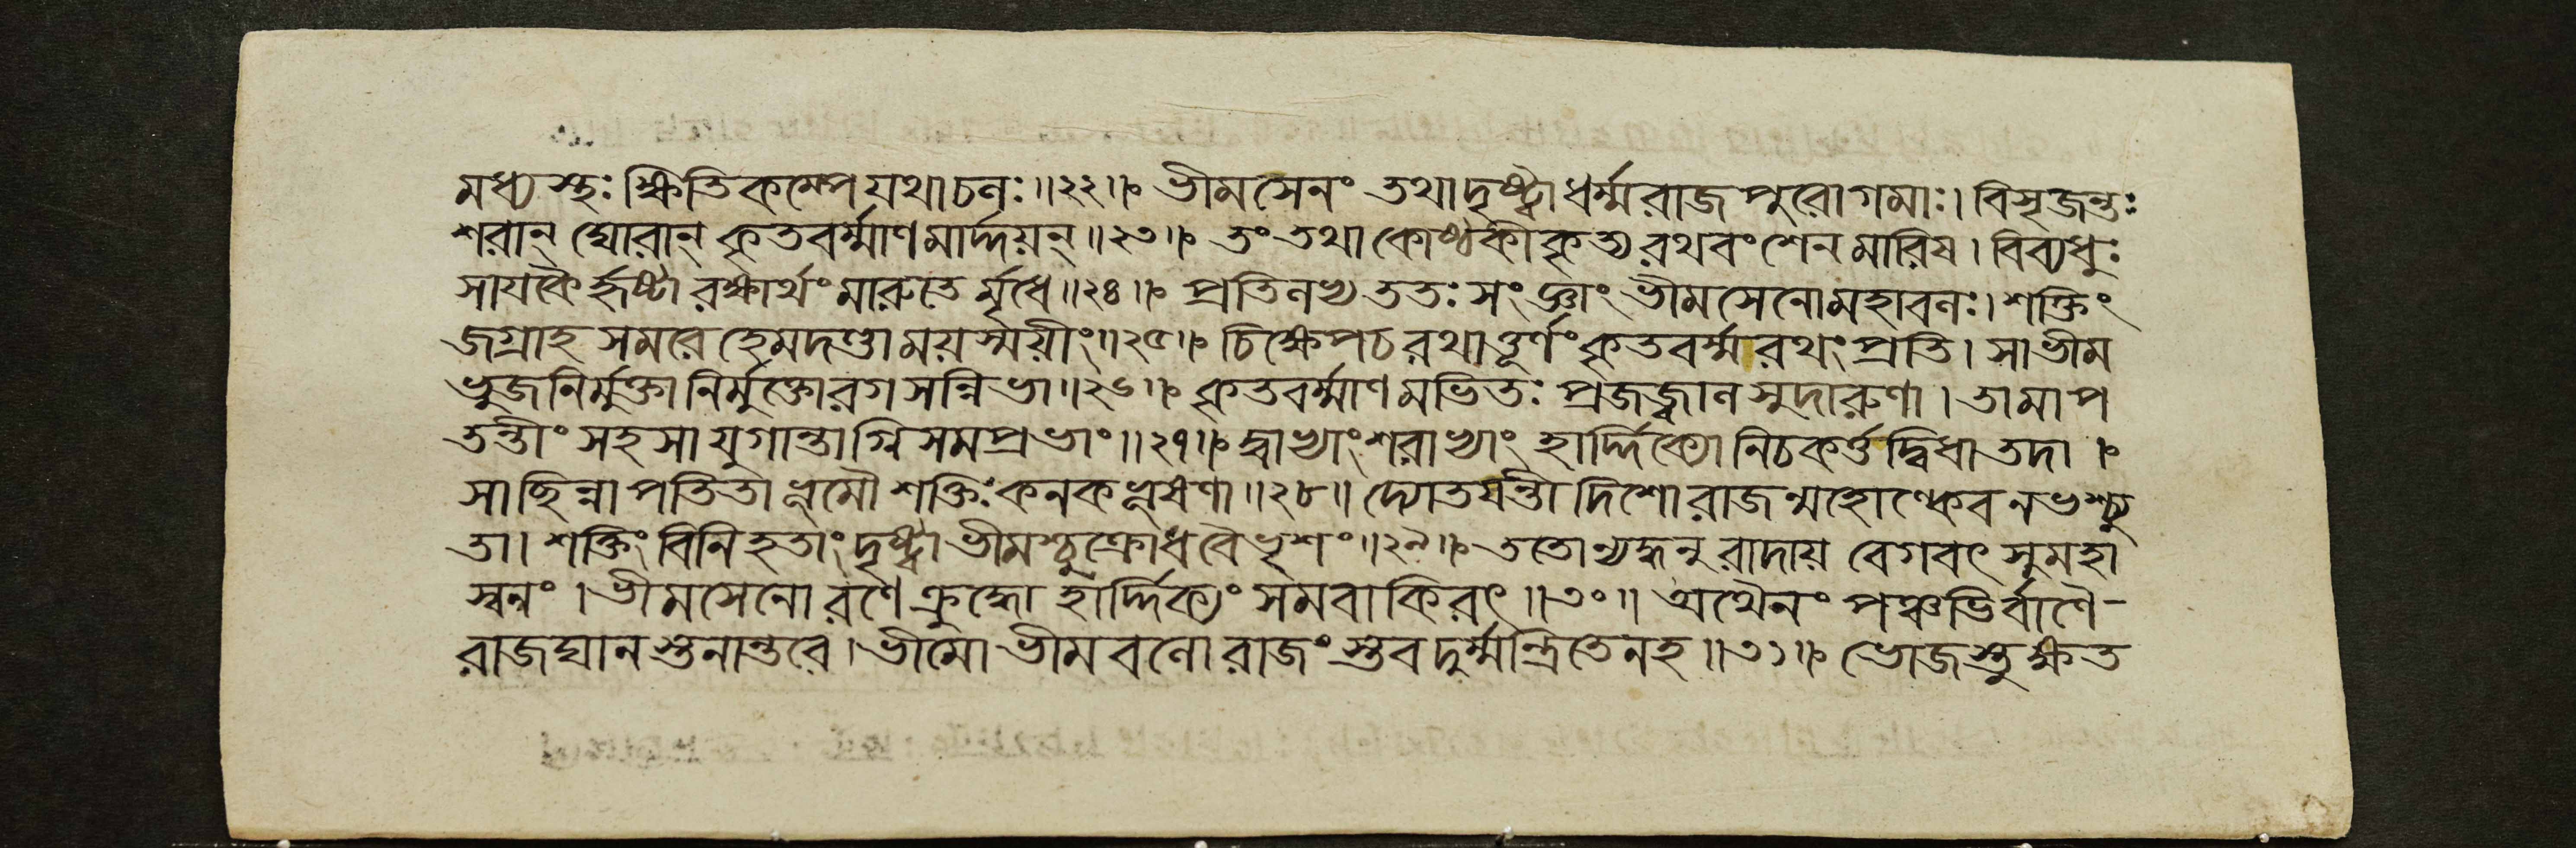 মধ্যস্তঃ ক্ষিতিকম্পেযথাচলঃ॥২২॥ ভীমসেনং তথাদৃষ্ট্বাধর্ম্মরাজপুরোগমাঃ। বিসৃজন্তঃ
শরান্ ঘোরান্ কৃতবর্ম্মাণমার্দ্দয়ন্॥২৩॥ তং তথা কোষ্ঠকীকৃত্য রথবংশেন মারিষ। বিব্যধুঃ
সাযকৈর্হৃষ্টা রক্ষার্থং মারুতের্মৃধে॥২৪॥ প্রতিলভ্য ততঃ সংজ্ঞাং ভীমসেনোমহাবলঃ। শক্তিং
জগ্রাহ সমরে হেমদণ্ডাময়স্ময়ীং॥২৫॥ চিক্ষেপচ রথাত্তূর্ণং কৃতবর্ম্মরথং প্রতি। সাভীম
ভুজনির্মুক্তানির্মুক্তোরগসন্নিভা॥২৬॥ কৃতবর্ম্মাণমভিতঃ প্রজজ্বালসুদারুণা। তামাপ
তন্তীং সহসা যুগান্তাগ্নিসমপ্রভাং॥২৭॥ দ্বাভ্যাং শরাভ্যাং হার্দ্দিক্যোনিচকর্ত্তদ্বিধাতদা।
সাছিন্নাপতিতাভূমৌ শক্তিঃ কনকভূষণা॥২৮॥ দ্যোতযন্তী দিশোরাজন্মহোল্কেবনভশ্চ্যু
তা। শক্তিং বিনিহতাং দৃষ্ট্বা ভীমশ্চুক্রোধবৈভৃশং॥২৯॥ ততোন্যদ্ধনুরাদায় বেগবৎ সুমহা
স্বনং। ভীমসেনোরণে ক্রুদ্ধো হার্দ্দিক্যং সমবাকিরৎ॥৩০॥ অথৈনং পঞ্চভির্বাণৈ-
রাজঘানস্তনান্তরে। ভীমো ভীমবলোরাজংস্তবদুর্ম্মন্ত্রিতেনহ॥৩১॥ ভোজস্তুক্ষত